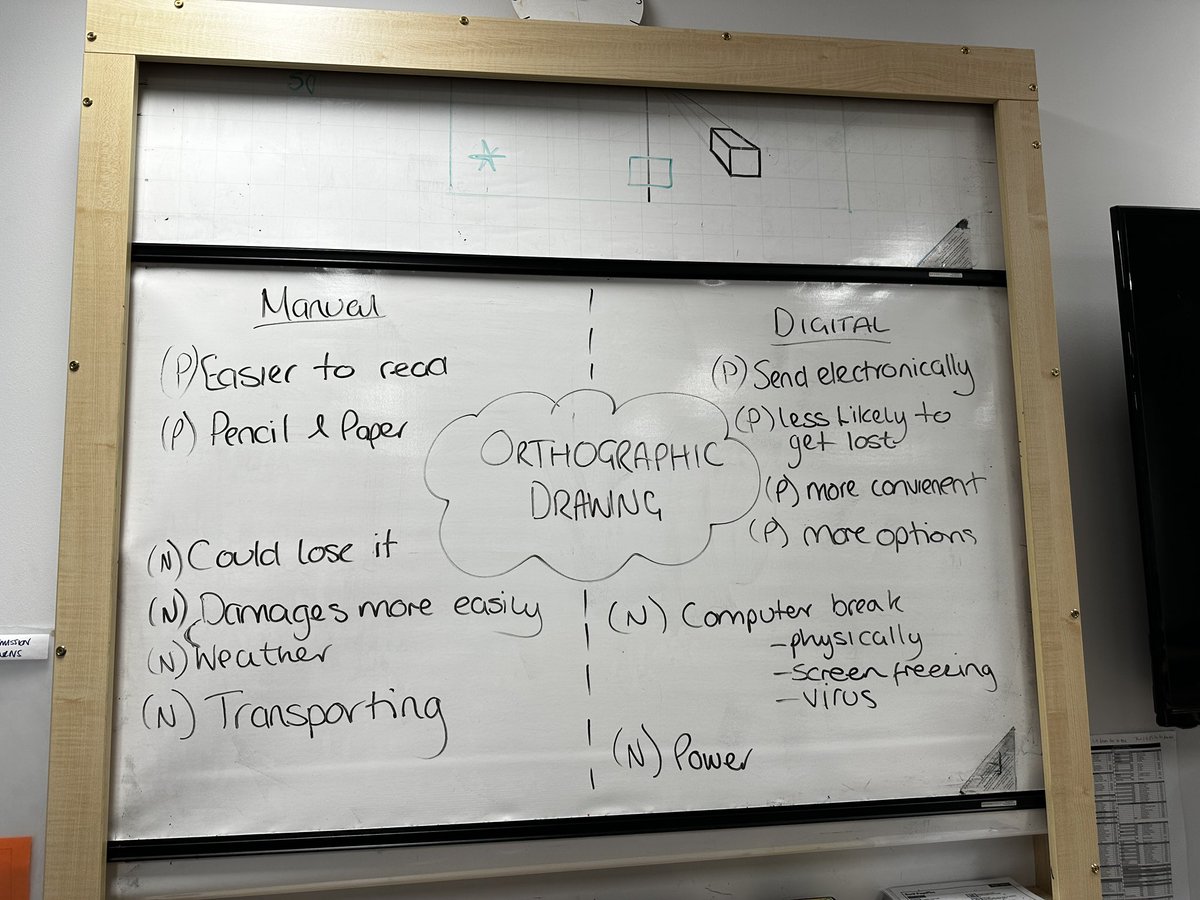 Manual
(P) Easier to read
(P) Pencil & Paper
(N) Could lose it
(N) Damages more easily
(N) Weather
(N) Transporting
ORTHOGRAPHIC
DRAWING
DIGITAL
(P) Send electronically
(P) less likely to
get lost
(P) more convienent
(P) more options
(N) Computer break
- physically
- screen freezing
- virus
(N) Power